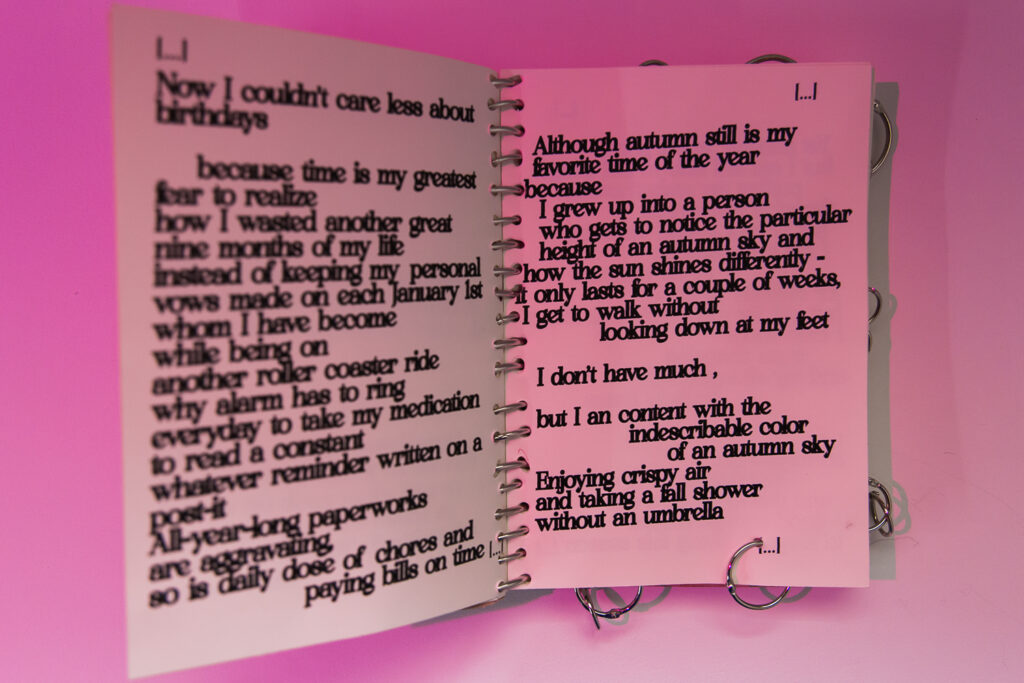 |...|
Now I couldn't care less about
birthdays
because time is my greatest
fear to realize
how I wasted another great
nine months of my life
instead of keeping my personal
vows made on each January 1st
whom I have become
while being on
another roller coaster ride
why alarm has to ring
everyday to take my medication
to read a constant
whatever reminder written on a
post-it
All-year-long paperworks
are aggravating,
so is daily dose of chores and
paying bills on time
|...
|...|
Although autumn still is my
favorite time of the year
because
I grew up into a person
who gets to notice the particular
height of an autumn sky and
how the sun shines differently -
it only lasts for a couple of weeks,
I get to walk without
looking down at my feet
I don't have much ,
but I an content with the
indescribable color
of an autumn sky
Enjoying crispy air
and taking a fall shower
without an umbrella
|...|